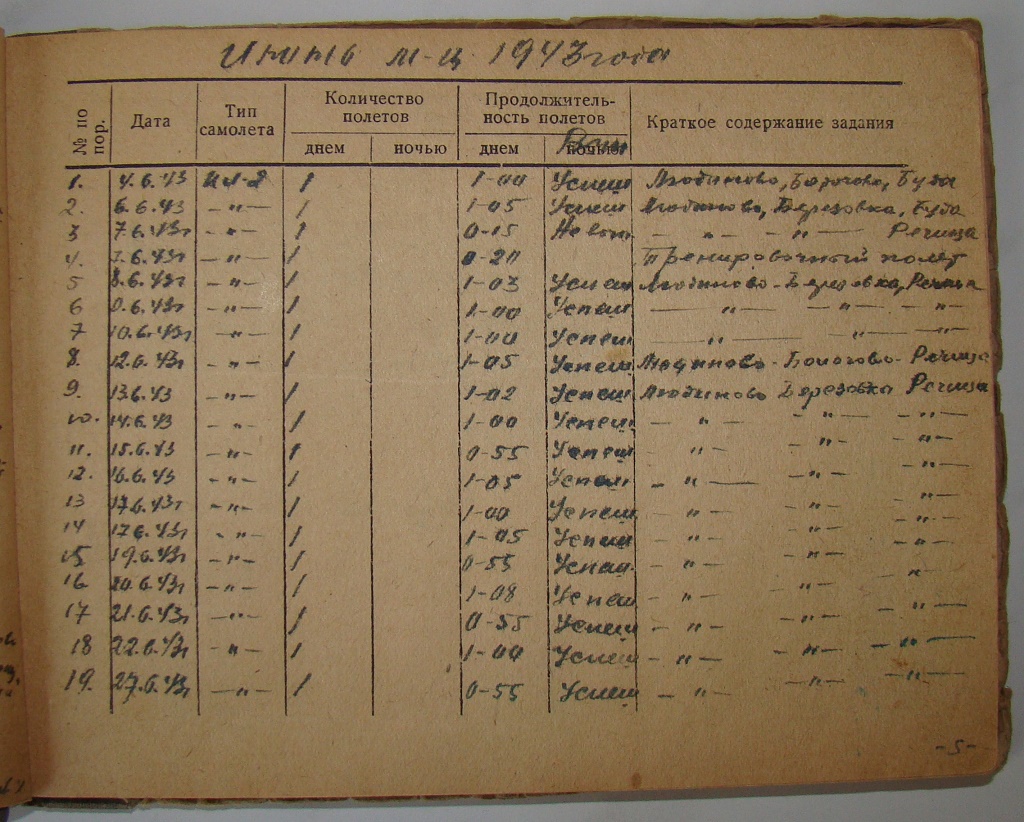 Июнь м-ц 1943 года
№ по пор. Дата Тип самолета Количество полетов Продолжительность полетов Краткое содержание задания
днем ночью днем ночью
1. 4.6.43 Ил-2 1 1-00 Успеш Людиново, Буда
2. 6.6.43 -"- 1 1-05 Успеш Людиново, Березовка, Буда
3 7.6.43г -"- 1 0-15 -"- -"- Речица
4. 7.6.43г -"- 1 0-20 Тренировочный полет
5 8.6.43г -"- 1 1-03 Успеш Людиново - Березовка, Речица
6 -"- 1 1-00 Успеш -"- -"- -"-
7 10.6.43г -"- 1 1-00 Успеш -"- -"- -"-
8. 12.6.43г -"- 1 1-05 Успеш Людиново - - Речица
9. 13.6.43 -"- 1 1-02 Успеш Людиново Березовка Речица
10. 14.6.43 -"- 1 1-00 Успеш -"- -"- -"-
11. 15.6.43 -"- 1 0-55 Успеш -"- -"- -"-
12. 16.6.43 -"- 1 1-05 Успеш -"- -"- -"-
13 17.6.43г -"- 1 1-00 Успеш -"- -"- -"-
14 17.6.43г -"- 1 1-05 Успеш -"- -"- -"-
15 19.6.43г -"- 1 0-55 Успеш -"- -"- -"-
16 20.6.43г -"- 1 1-08 Успеш -"- -"- -"-
17 21.6.43г -"- 1 0-55 Успеш -"- -"- -"-
18 22.6.43г -"- 1 1-00 Успеш -"- -"- -"-
19. 27.6.43г -"- 1 0-55 Успеш -"- -"- -"-
-5-